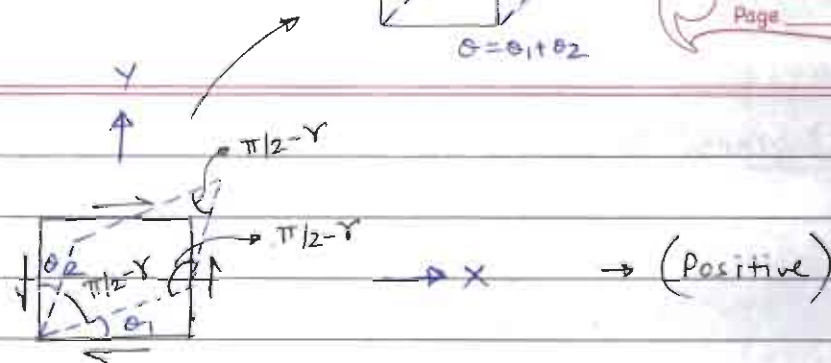 Page
θ=θ1+θ2
Y
π/2-γ
π/2-γ
θ2
π/2-γ
θ1
X
→ (Positive)